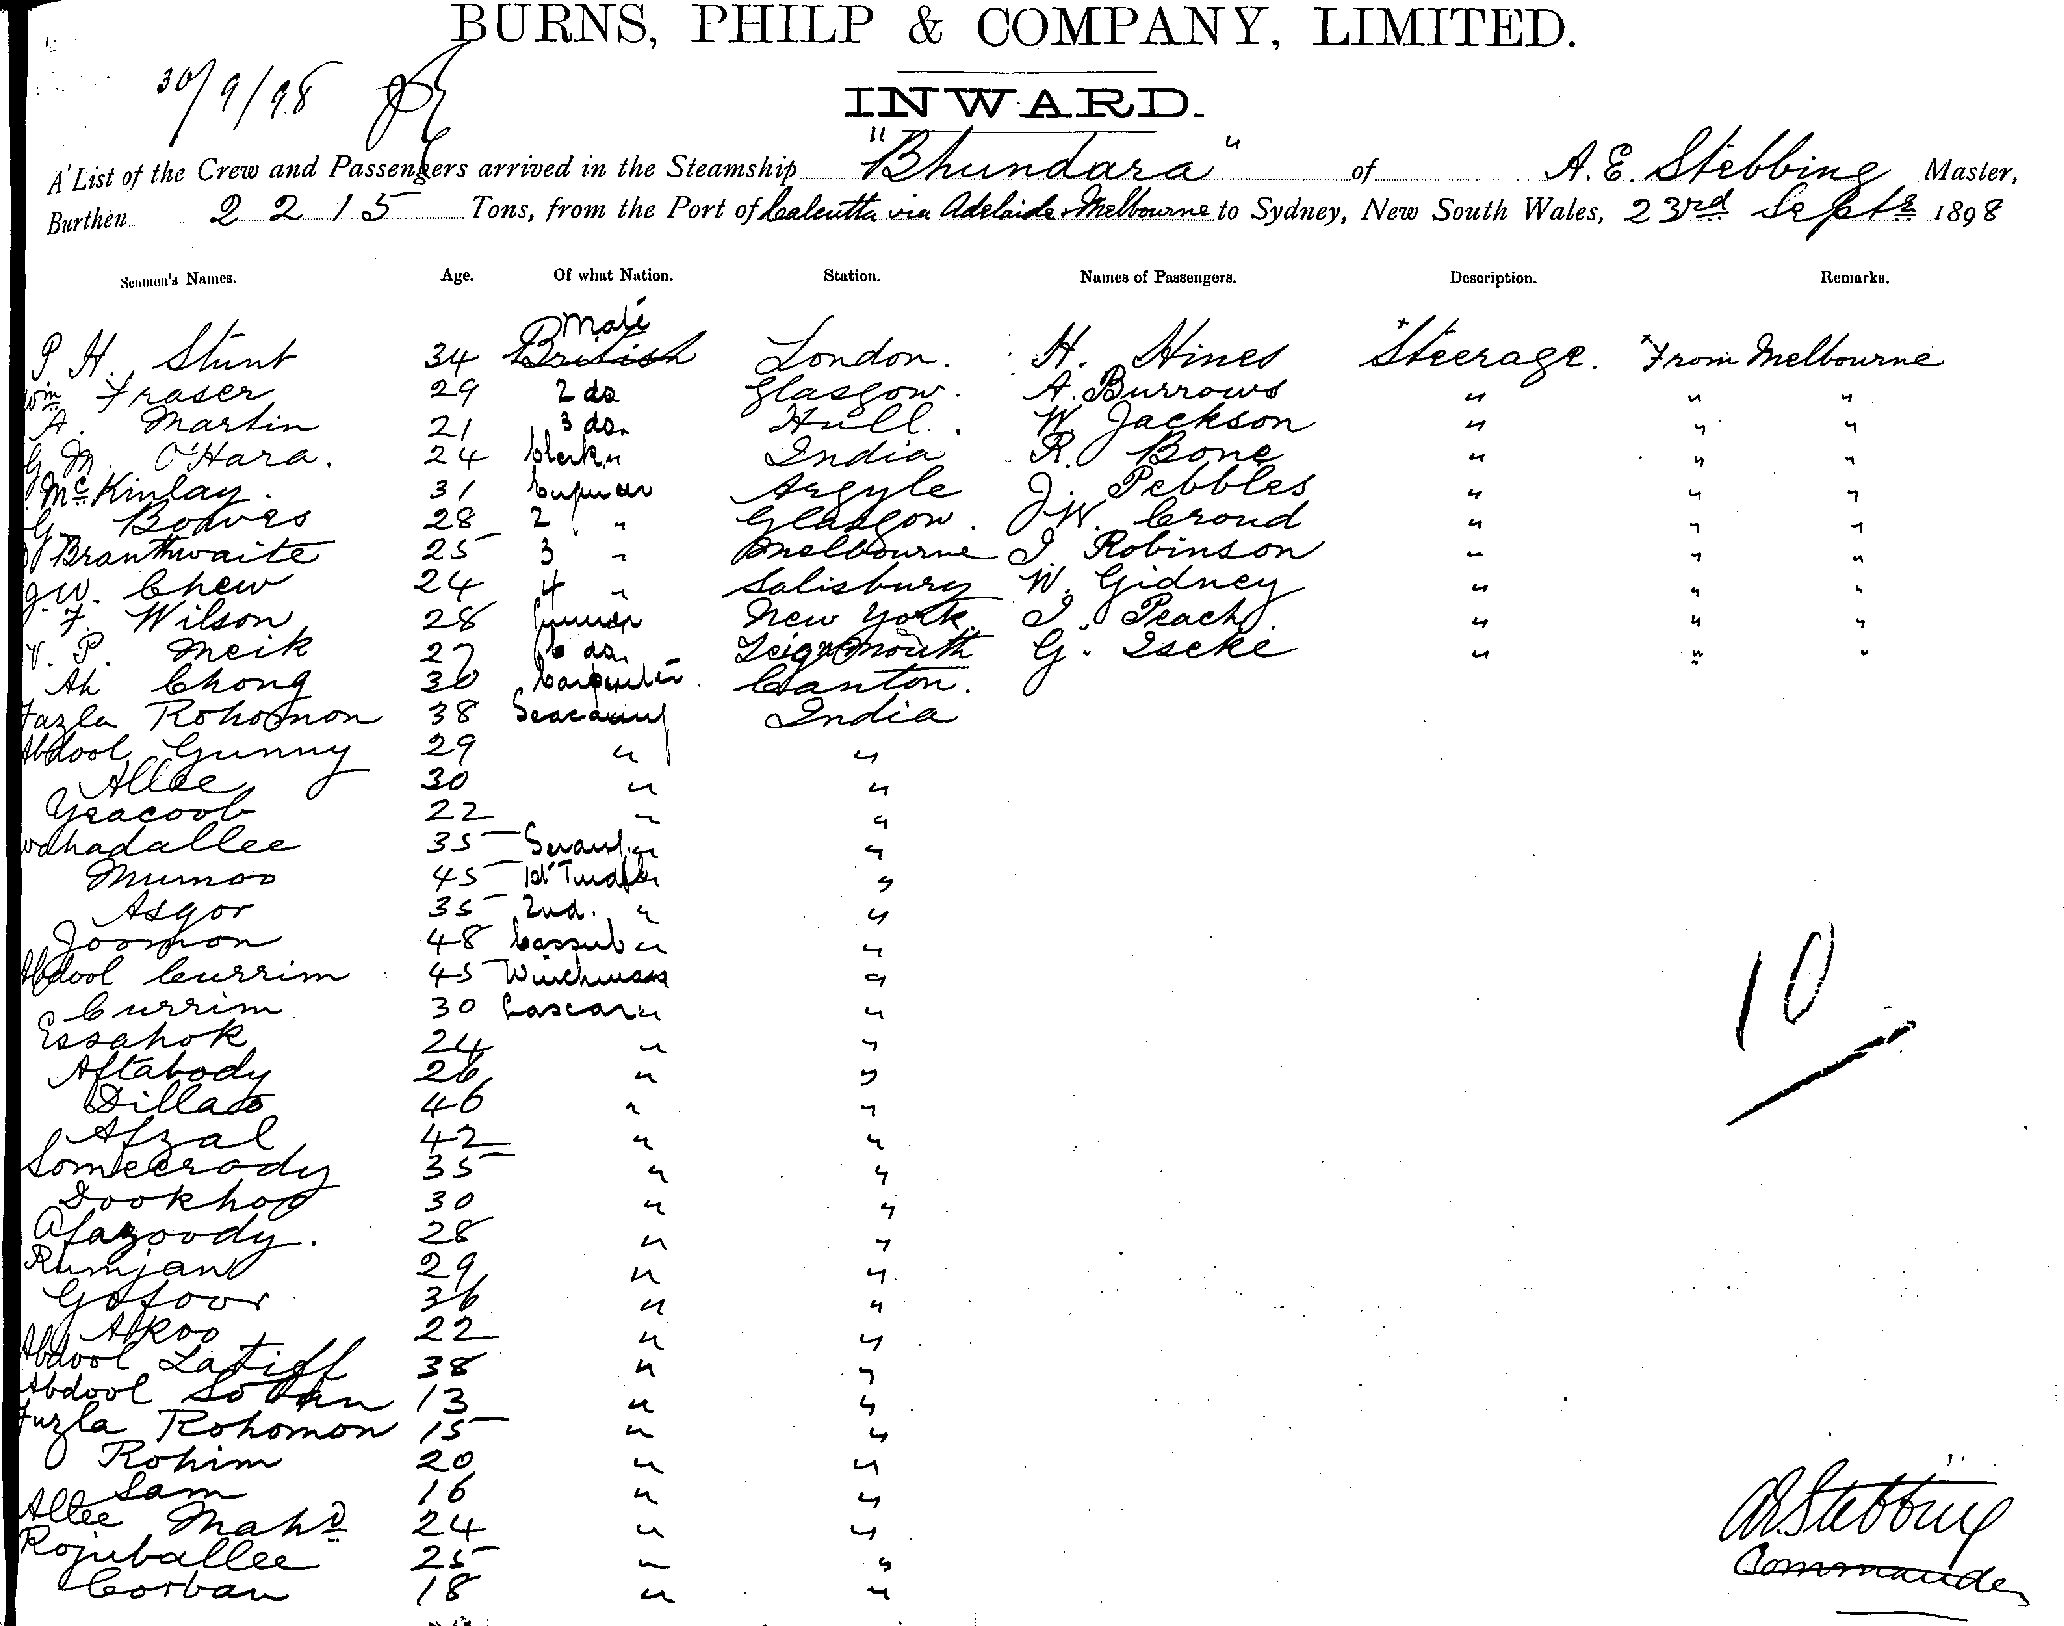 BURNS, PHILP & COMPANY, LIMITED.
30/9/98
INWARD.
A List of the Crew and Passengers arrived in the Steamship "Bhundara" of A. E. Stebbing Master,
Burthen 2215 Tons, from the Port of Calcutta via Adelaide & Melbourne to Sydney, New South Wales, 23rd Septr 1898
Seamen's Names. Age. Of what Nation. Station. Names of Passengers. Description. Remarks.
Mate
P H. Stunt 34 British London. H. Hines Steerage. From Melbourne
Wm Fraser 29 2 do Glasgow. A. Burrows " " "
A. Martin 21 3 do. Hull. W. Jackson " " "
G M O'Hara. 24 Clerk " India R. Bone " " "
McKinlay. 31 Argyle J. Pebbles " " "
G. Bowes 28 2 " Glasgow. J W. Croud " " "
Branthwaite 25 3 " Melbourne J Robinson " " "
J. W. Chew 24 4 " Salisbury W. Gidney " " "
F. Wilson 28 Gunner New York. J. Peach " " "
P. Meik 27 do. Teignmouth G. Iseke " " "
Ah Chong 30 Carpenter. Canton.
Fazla Rohomon 38 Seacunny India
Abdool Gunny 29 " "
Allee 30 " "
Yeacoob 22 " "
Wahadallee 35 Serang " "
Mumoo 45 1st Tindal " "
Asgor 35 2nd. " "
Joomon 48 Cassub " "
Abdool Currim 45 Winchman "
Currim 30 Lascar " "
Essahok 24 " "
Aftabody 26 " "
Dillao 46 " "
Afzal 42 " "
Someerody 35 " "
Dookhoo 30 " "
Afazoody. 28 " "
Rumjan 29 " "
Gofoor 36 " "
Akoo 22 " "
Abdool Latiff 38 " "
Abdool Soban 13 " "
Fuzla Rohomon 15 " "
Rohim 20 " "
Sam 16 " "
Allee Mahd 24 " "
Rojuballee 25 " "
Corban 18 " "
10
A E Stebbing
Commander